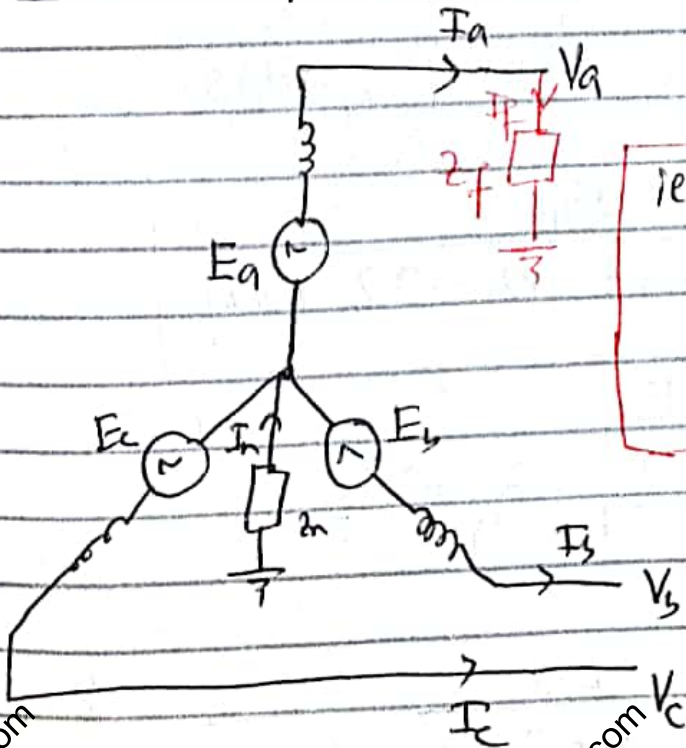 Ia
Va
If
Zf
ie
Ea
Ec
In
Eb
Zn
Ib
Vb
Ic
Vc
com
com